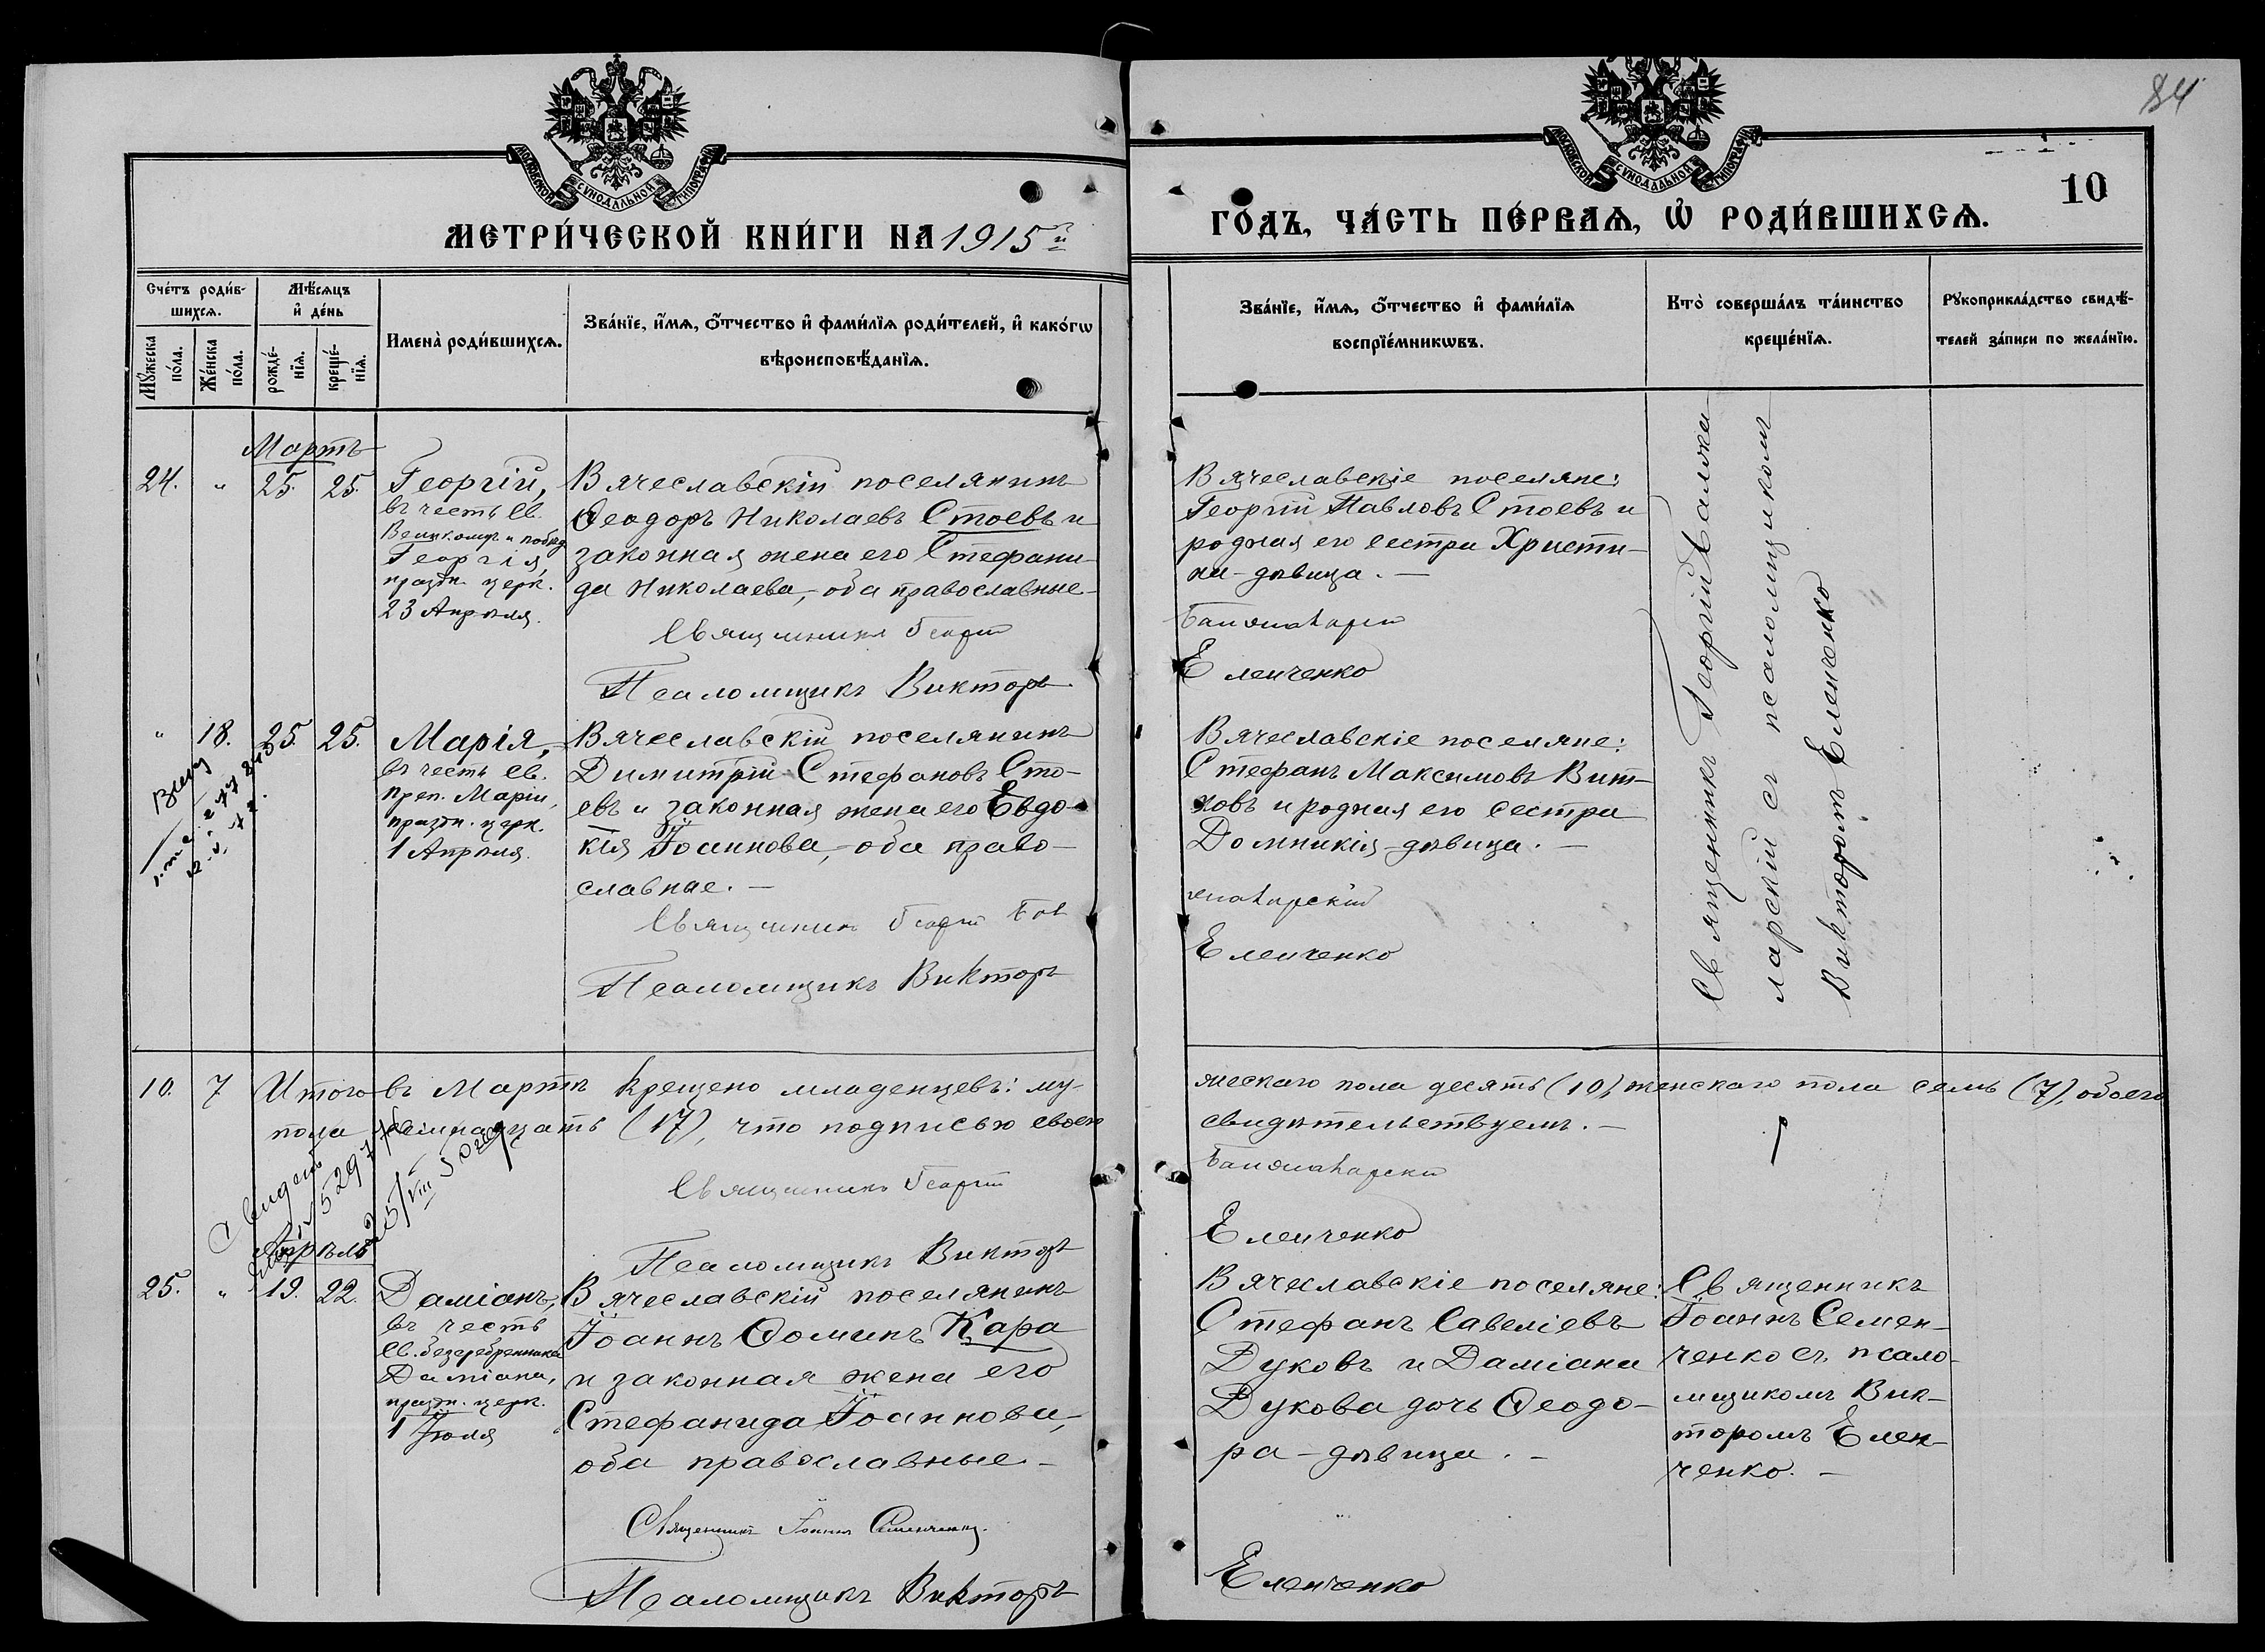 84
МОСКОВСКОЙ СѴНОДАЛЬНОЙ ТИПОГРАФІИ
МОСКОВСКОЙ СѴНОДАЛЬНОЙ ТИПОГРАФІИ
МЕТРИ́ЧЕСКОЙ КНИ́ГИ НА 1915й
ГО́ДЪ, ЧА́СТЬ ПЕ́РВАѦ, Ѽ РОДИ́ВШИХСѦ.
10
Сче́тъ роди́в-
шихсѧ.
Мꙋ́жеска по́ла.
Же́нска по́ла.
Мѣ́сѧцъ
и҆ де́нь
рожде́-нїѧ.
креще́-нїѧ.
Имена̀ роди́вшихсѧ.
Зва́нїе, и҆́мѧ, ѻ҆́тчество и҆ фами́лїѧ роди́телей, и҆ како́гѡ
вѣроисповѣ́данїѧ.
Зва́нїе, и҆́мѧ, ѻ҆́тчество и҆ фами́лїѧ
воспрїе́мникѡвъ.
Кто̀ соверша́лъ та́инство
креще́нїѧ.
Рꙋкоприкла́дство свидѣ́-
телей за́писи по жела́нїю.
Мартъ
24. " 25. 25.
Георгій,
въ честь св.
Великомуч. и побѣд.
Георгія,
празд. церк.
23 Апрѣля.
Вячеславскій поселянинъ
Ѳеодоръ Николаевъ Стоевъ и
законная жена его Стефани-
да Николаева, - оба православные -
Священникъ Георгій
Псаломщикъ Викторъ
Вячеславскіе поселяне:
Георгій Павловъ Стоевъ и
родная его сестра Христи-
на - дѣвица. -
Еленченко
Священникъ Георгій
псаломщикомъ
Викторомъ Еленченко
" 18. 25. 25.
Марія,
въ честь св.
преп. Маріи,
празд. церк.
1 Апрѣля.
Вячеславскій поселянинъ
Димитрій Стефановъ Сто-
евъ и законная жена его Евдо-
кія Іоаннова, - оба право-
славные. -
Священникъ Георгій
Псаломщикъ Викторъ
Вячеславскіе поселяне:
Стефанъ Максимовъ Вит-
ковъ и родная его сестра
Домникія - дѣвица. -
Еленченко
10. 7 Итого въ Мартѣ крещено младенцевъ: му-
жескаго пола десять (10), женскаго пола семь (7), обоего
пола семнадцать (17), что подписью своею
свидѣтельствуемъ. -
Священникъ Георгій
Псаломщикъ Викторъ
Еленченко
Апрѣль
25. " 19. 22.
Даміанъ,
въ честь
св. безсребренника
Даміана,
празд. церк.
1 Іюля
Вячеславскій поселянинъ
Іоаннъ Ѳоминъ Кара
и законная жена его
Стефанида Іоаннова, -
оба православные. -
Священникъ Іоаннъ Семенченко.
Псаломщикъ Викторъ
Вячеславскіе поселяне:
Стефанъ Савеліевъ
Дуковъ и Даміана
Дукова дочь Ѳеодо-
ра - дѣвица. -
Еленченко
Священникъ
Іоаннъ Семен-
ченко съ псало-
мщикомъ Вик-
торомъ Елен-
ченко. -